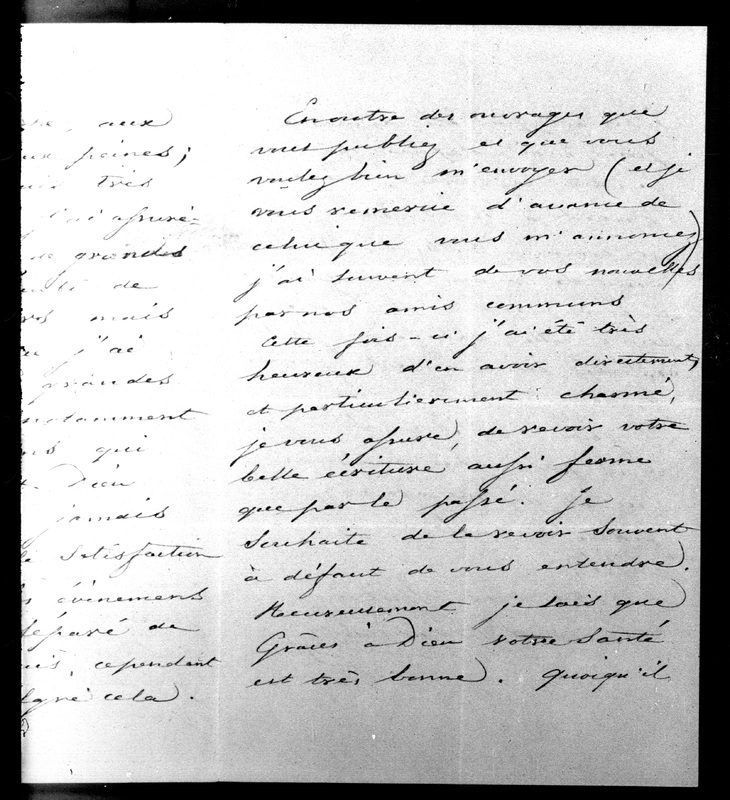 aux
peines;
très
assuré-
grandes
de
mais
j'ai
grandes
notamment
qui
Dieu
jamais
satisfaction
événemens
séparé de
cependant
malgré cela.
En outre des ouvrages que
vous publiez et que vous
voulez bien m'envoyer (et je
vous remercie d'avance de
celui que vous m'annoncez)
j'ai souvent de vos nouvelles
par nos amis communs
Cette fois-ci j'ai été très
heureux d'en avoir directement,
et particulierement charmé,
je vous assure, de revoir votre
belle écriture aussi ferme
que par le passé. Je
souhaite de la revoir souvent
à défaut de vous entendre.
Heureusement je sais que
Grâces à Dieu votre santé
est très bonne. Quoiqu'il